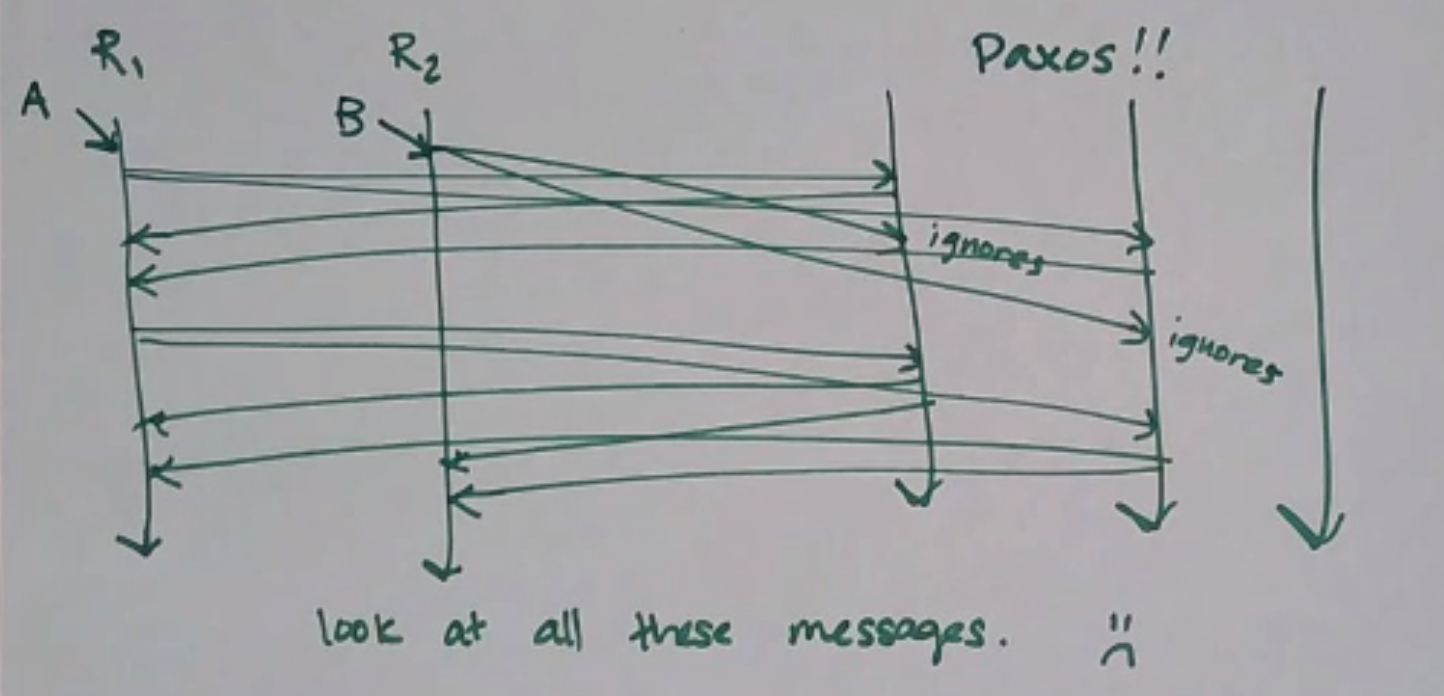 R₁
R₂
Paxos!!
A
B
ignores
ignores
look at all these messages. :(